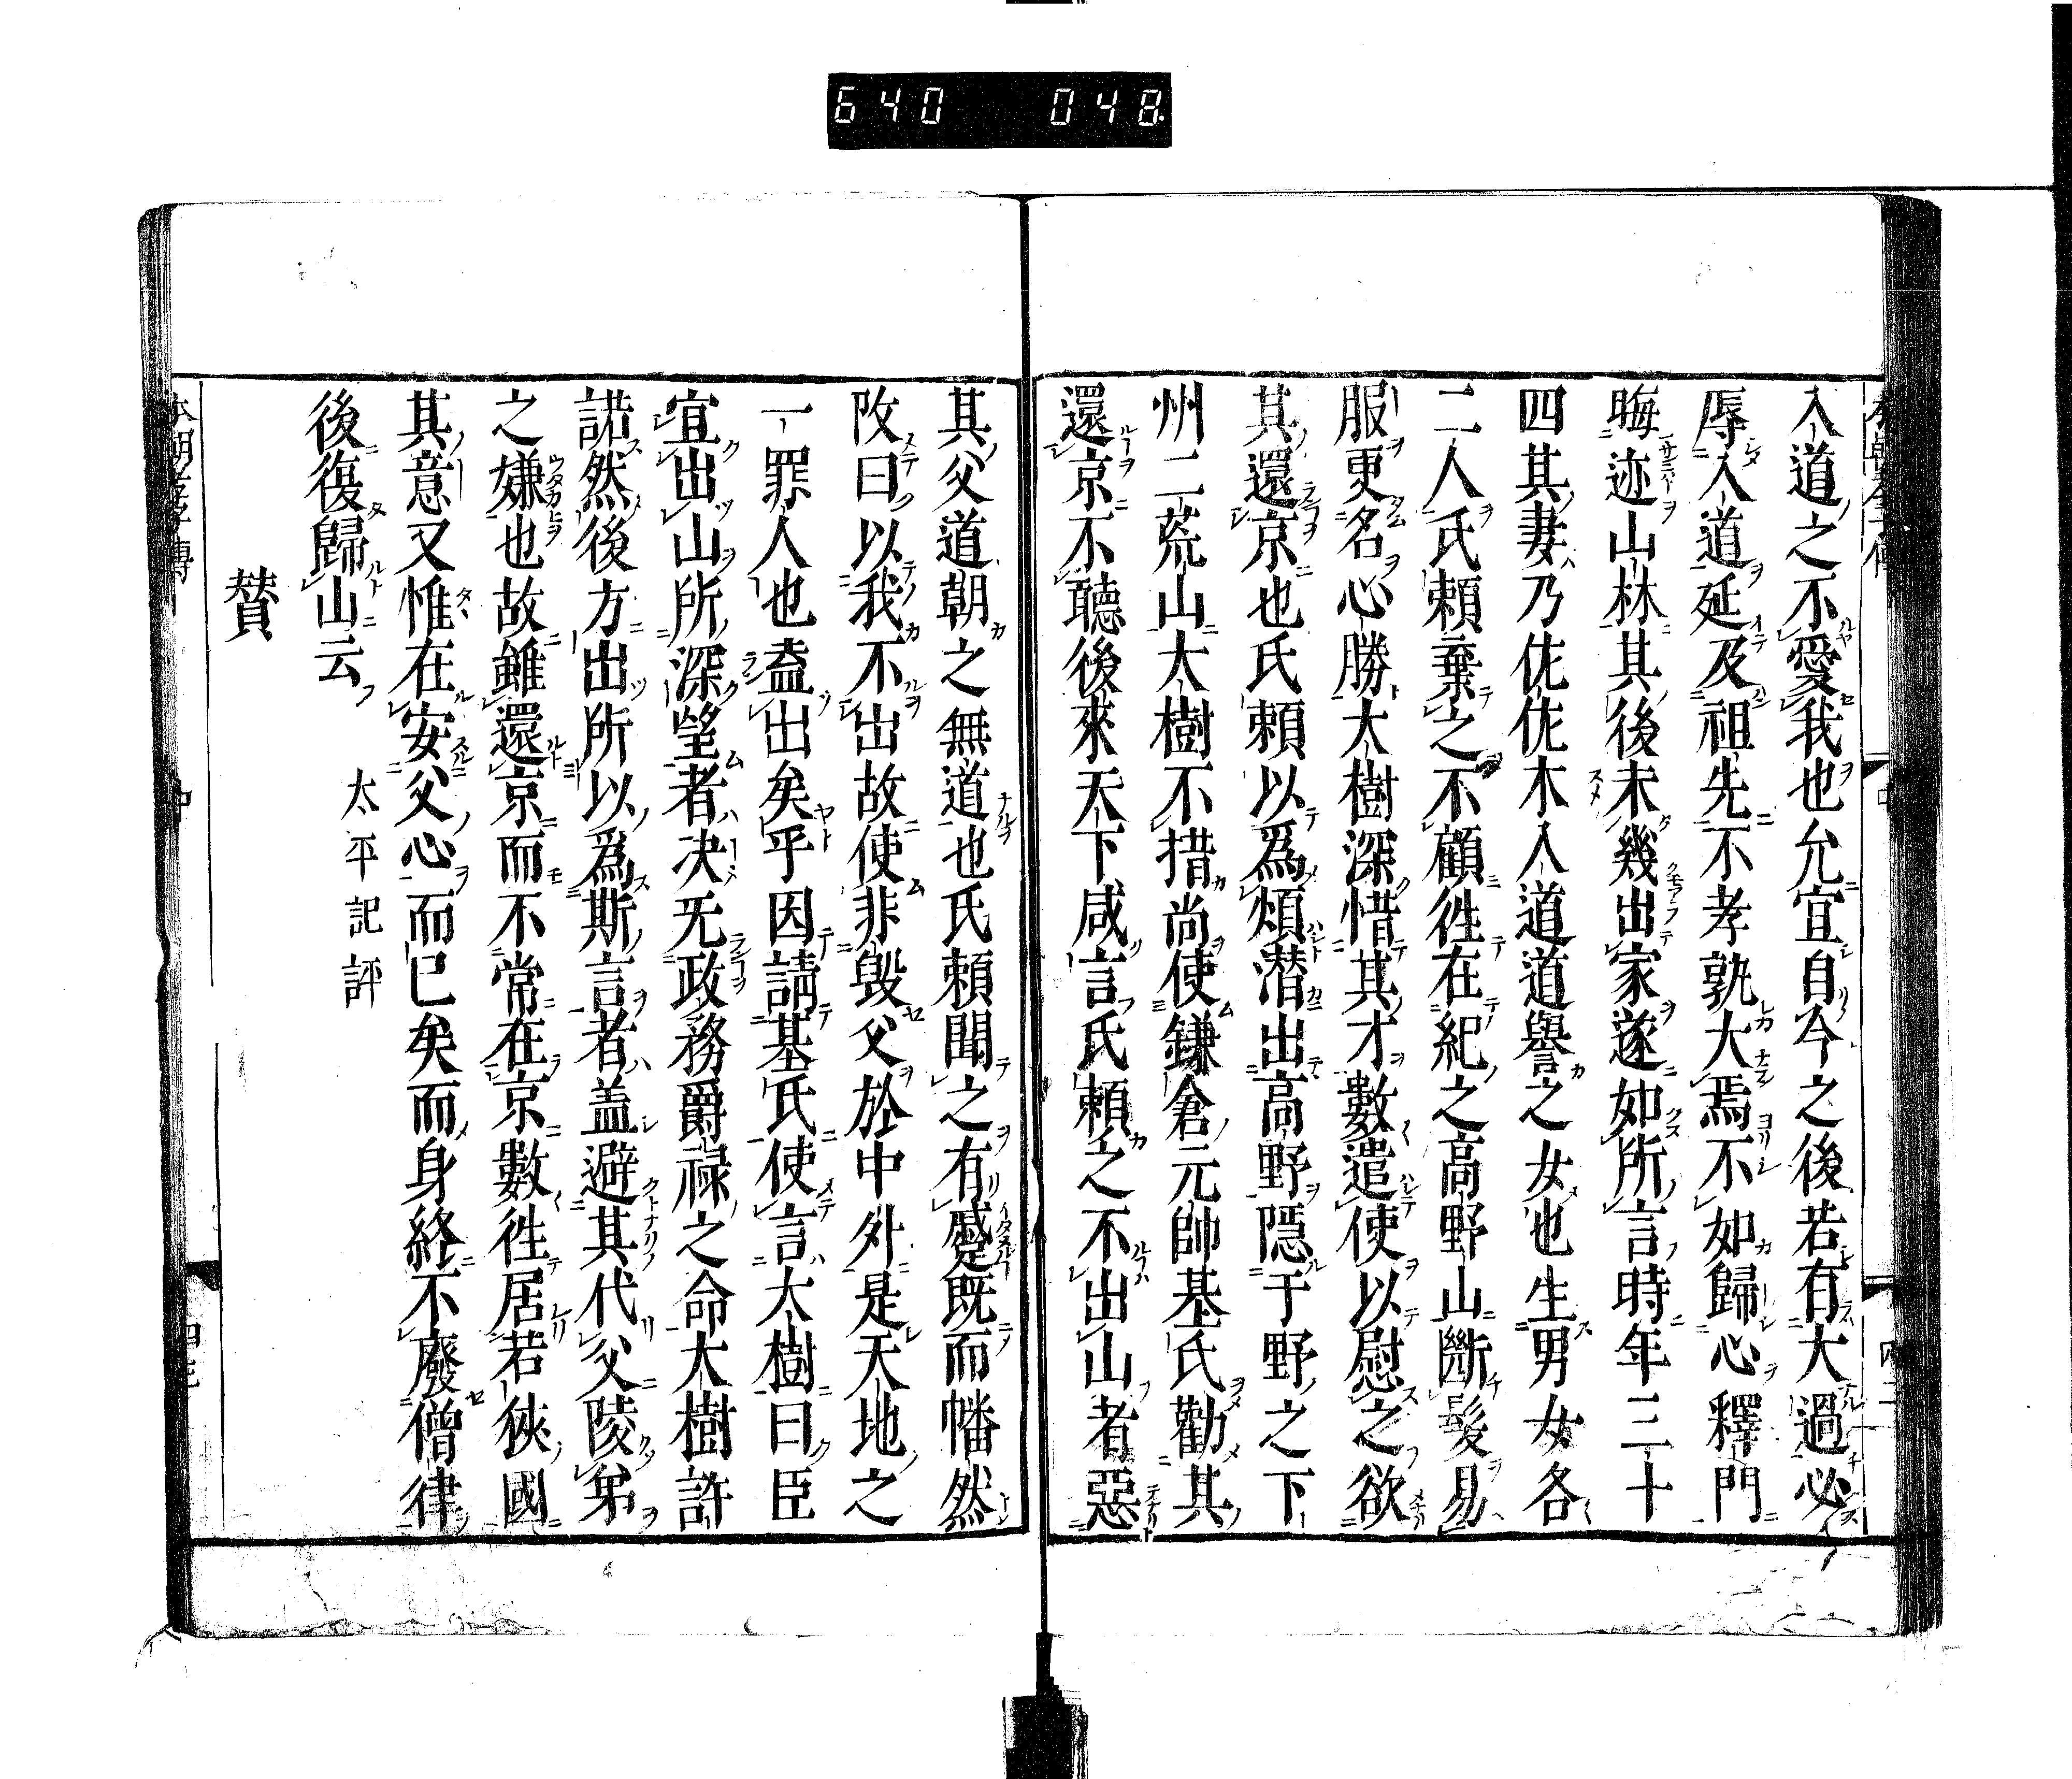 640 048
入道之不愛我也允宜自今之後若有大過必
辱入道延及祖先不孝孰大焉不如歸心釋門
晦迹山林其後未幾出家遂如所言時年三十
四其妻乃佐佐木入道道譽之女也生男女各
二人氏頼棄之不顧徃在紀之高野山斷髮易
服更名心勝大樹深惜其才數遣使以慰之欲
其還京也氏頼以爲煩潜出高野隱于野之下
州二荒山大樹不措尚使鎌倉元帥基氏勸其
還京不聽後來天下咸言氏頼之不出山者惡
其父道朝之無道也氏頼聞之有蹙既而幡然
改曰以我不出故使非毀父於中外是天地之
一罪人也盍出矣乎因請基氏使言大樹曰臣
宜出山所深望者决无政務爵禄之命大樹許
諾然後方出所以爲斯言者盖避其代父陵弟
之嫌也故雖還京而不常在京數徃居若狹國
其意又惟在安父心而已矣而身終不廢僧律
後復歸山云 太平記評
賛
本朝孝子傳 中